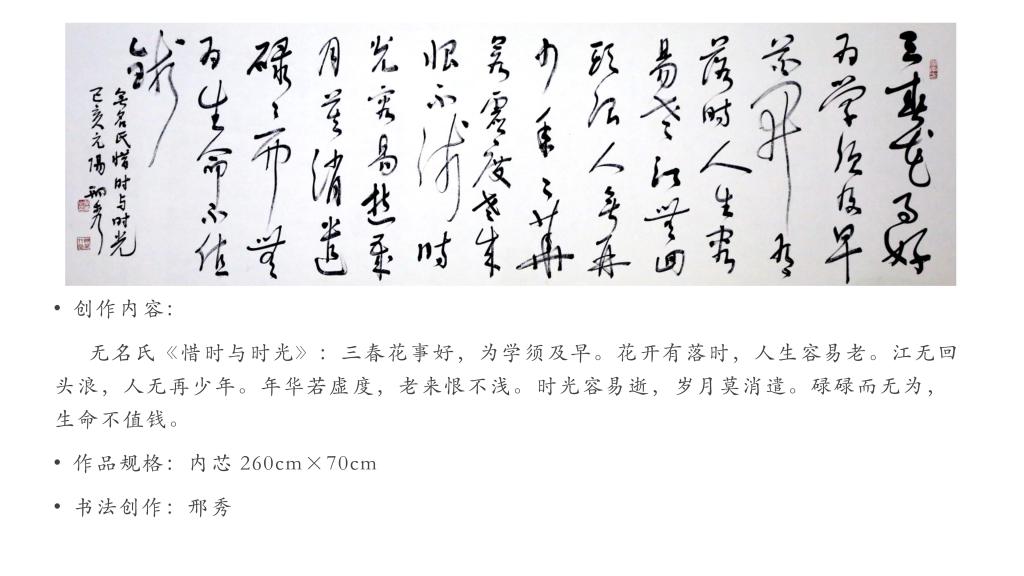 三春花事好
为学须及早
花开有
落时人生容
易老江无回
头浪人无再
少年年华
若虚度老来
恨不浅时
光容易逝岁
月莫消遣
碌碌而无
为生命不值
钱
无名氏惜时与时光
己亥元阳
• 创作内容：
无名氏《惜时与时光》：三春花事好，为学须及早。花开有落时，人生容易老。江无回
头浪，人无再少年。年华若虚度，老来恨不浅。时光容易逝，岁月莫消遣。碌碌而无为，
生命不值钱。
• 作品规格：内芯 260cm×70cm
• 书法创作：邢秀